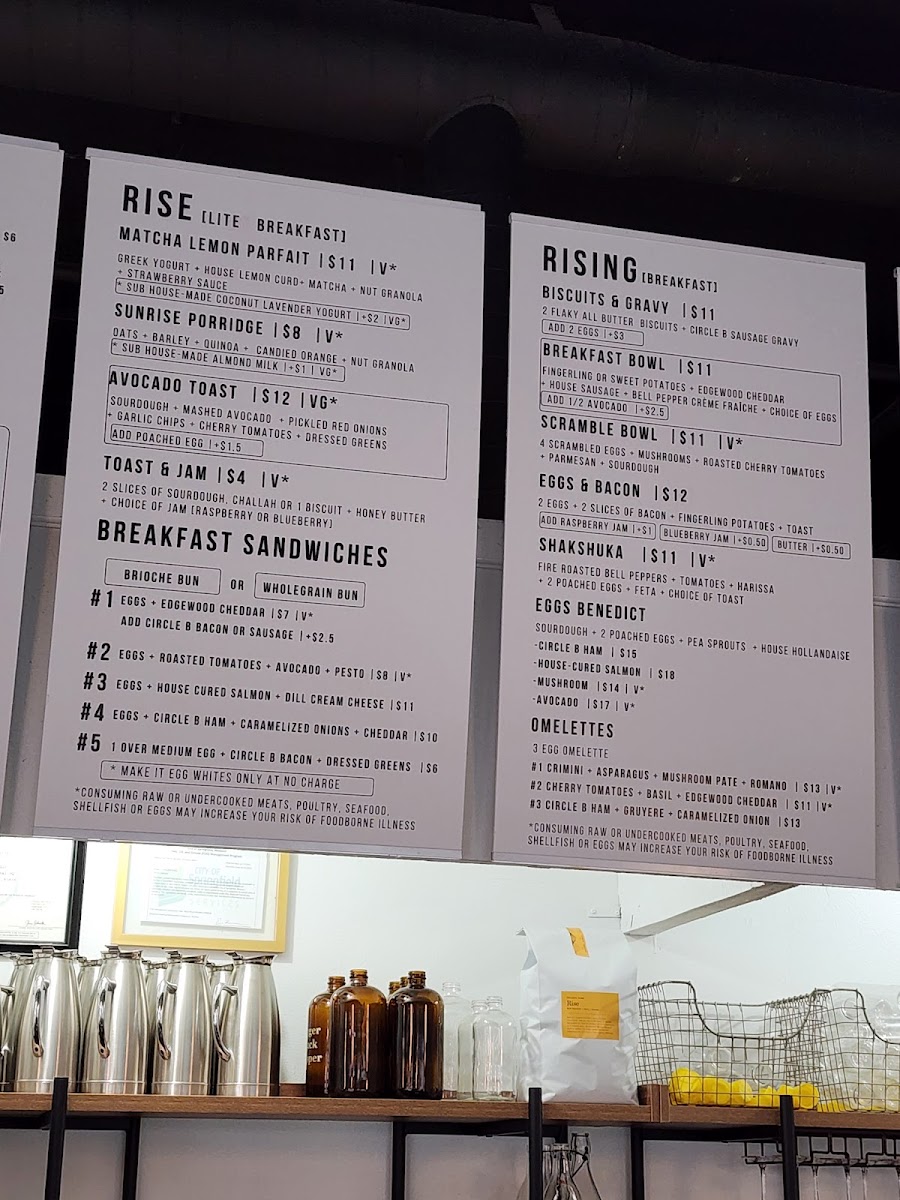 $6
5
RISE [LITE BREAKFAST]
MATCHA LEMON PARFAIT | $11 | V*
GREEK YOGURT + HOUSE LEMON CURD+ MATCHA + NUT GRANOLA
+ STRAWBERRY SAUCE
* SUB HOUSE-MADE COCONUT LAVENDER YOGURT |+$2 |VG*
SUNRISE PORRIDGE | $8 | V*
OATS + BARLEY + QUINOA + CANDIED ORANGE + NUT GRANOLA
* SUB HOUSE-MADE ALMOND MILK |+$1 | VG*
AVOCADO TOAST | $12 | VG*
SOURDOUGH + MASHED AVOCADO + PICKLED RED ONIONS
+ GARLIC CHIPS + CHERRY TOMATOES + DRESSED GREENS
ADD POACHED EGG |+$1.5
TOAST & JAM | $4 | V*
2 SLICES OF SOURDOUGH, CHALLAH OR 1 BISCUIT + HONEY BUTTER
+ CHOICE OF JAM [RASPBERRY OR BLUEBERRY]
BREAKFAST SANDWICHES
BRIOCHE BUN OR WHOLEGRAIN BUN
#1 EGGS + EDGEWOOD CHEDDAR | $7 | V*
ADD CIRCLE B BACON OR SAUSAGE |+$2.5
#2 EGGS + ROASTED TOMATOES + AVOCADO + PESTO | $8 | V*
#3 EGGS + HOUSE CURED SALMON + DILL CREAM CHEESE | $11
#4 EGGS + CIRCLE B HAM + CARAMELIZED ONIONS + CHEDDAR | $10
#5 1 OVER MEDIUM EGG + CIRCLE B BACON + DRESSED GREENS | $6
* MAKE IT EGG WHITES ONLY AT NO CHARGE
*CONSUMING RAW OR UNDERCOOKED MEATS, POULTRY, SEAFOOD,
SHELLFISH OR EGGS MAY INCREASE YOUR RISK OF FOODBORNE ILLNESS
RISING [BREAKFAST]
BISCUITS & GRAVY | $11
2 FLAKY ALL BUTTER BISCUITS + CIRCLE B SAUSAGE GRAVY
ADD 2 EGGS |+$3
BREAKFAST BOWL | $11
FINGERLING OR SWEET POTATOES + EDGEWOOD CHEDDAR
+ HOUSE SAUSAGE + BELL PEPPER CRÈME FRAÎCHE + CHOICE OF EGGS
ADD 1/2 AVOCADO |+$2.5
SCRAMBLE BOWL | $11 | V*
4 SCRAMBLED EGGS + MUSHROOMS + ROASTED CHERRY TOMATOES
+ PARMESAN + SOURDOUGH
EGGS & BACON | $12
2 EGGS + 2 SLICES OF BACON + FINGERLING POTATOES + TOAST
ADD RASPBERRY JAM |+$1 BLUEBERRY JAM |+$0.50 BUTTER |+$0.50
SHAKSHUKA | $11 | V*
FIRE ROASTED BELL PEPPERS + TOMATOES + HARISSA
+ 2 POACHED EGGS + FETA + CHOICE OF TOAST
EGGS BENEDICT
SOURDOUGH + 2 POACHED EGGS + PEA SPROUTS + HOUSE HOLLANDAISE
-CIRCLE B HAM | $15
-HOUSE-CURED SALMON | $18
-MUSHROOM | $14 | V*
-AVOCADO | $17 | V*
OMELETTES
3 EGG OMELETTE
#1 CRIMINI + ASPARAGUS + MUSHROOM PATE + ROMANO | $13 | V*
#2 CHERRY TOMATOES + BASIL + EDGEWOOD CHEDDAR | $11 | V*
#3 CIRCLE B HAM + GRUYERE + CARAMELIZED ONION | $13
*CONSUMING RAW OR UNDERCOOKED MEATS, POULTRY, SEAFOOD,
SHELLFISH OR EGGS MAY INCREASE YOUR RISK OF FOODBORNE ILLNESS
CITY OF
SERVICES
ger
ck
per